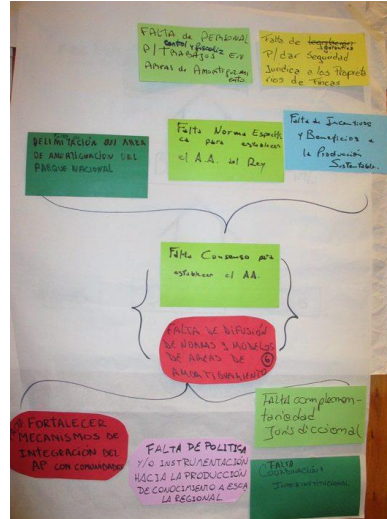 FALTA de PERSONAL
control y fiscaliz
P/TRABAJOS En
Areas de Amortiguami
ento
Falta de
P/ dar Seguridad
Jurídica a los Propieta
rios de Fincas
DELIMITACIÓN DEL AREA
DE AMORTIGUACIÓN DEL
PARQUE NACIONAL
Falta Norma Específi
ca para establecer
el A.A. del Rey
Falta de Incentivos
y Beneficios a
la Producción
Sustentable.
Falta Consenso para
establecer el AA.
FALTA DE DIFUSIÓN
DE NORMAS Y MODELOS
DE AREAS DE
AMORTIGUAMIENTO
FORTALECER
MECANISMOS DE
INTEGRACIÓN DEL
AP CON COMUNIDADES
FALTA DE POLITICA
Y/O INSTRUMENTACIÓN
HACIA LA PRODUCCIÓN
DE CONOCIMIENTO A ESCA
LA REGIONAL
Falta complemen-
tariedad
Jurisdiccional
FALTA
COORDINACIÓN
INTERINSTITUCIONAL